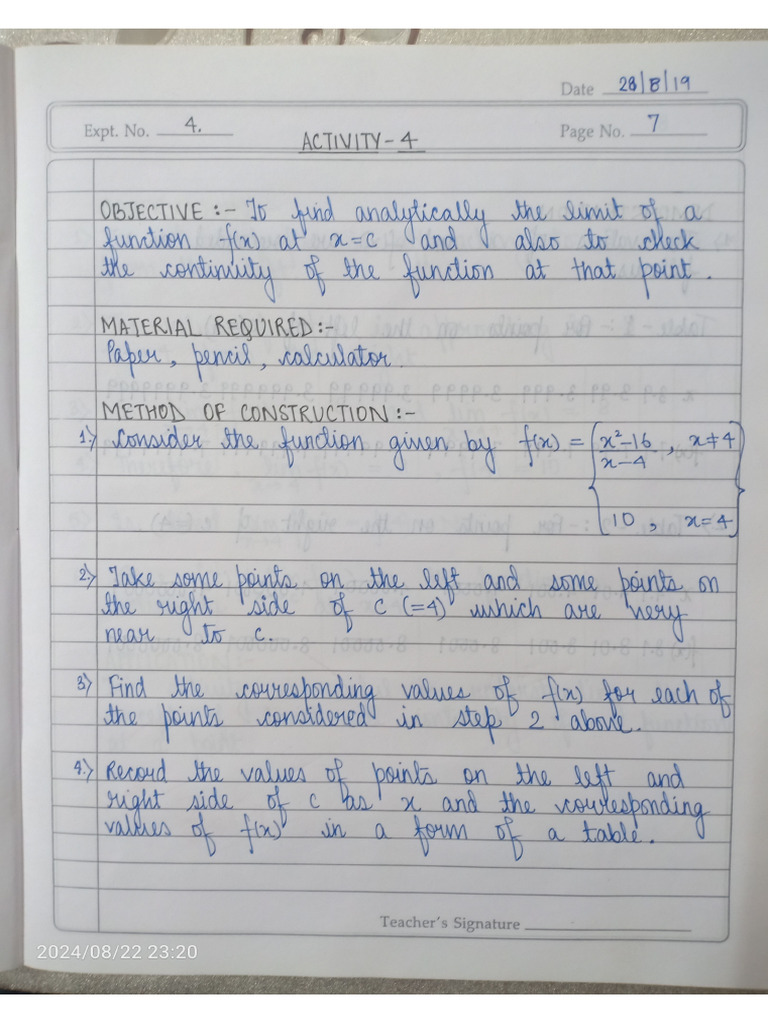 Date 28/8/19
Expt. No. 4.
ACTIVITY-4
Page No. 7
OBJECTIVE :- To find analytically the limit of a
function f(x) at x=c and also to check
the continuity of the function at that point.
MATERIAL REQUIRED:-
Paper, pencil, calculator.
METHOD OF CONSTRUCTION:-
1) Consider the function given by f(x) = { (x²-16)/(x-4) , x≠4
10 , x=4 }
2) Take some points on the left and some points on
the right side of c (=4) which are very
near to c.
3) Find the corresponding values of f(x) for each of
the points considered in step 2 above.
4) Record the values of points on the left and
right side of c as x and the corresponding
values of f(x) in a form of a table.
Teacher's Signature
2024/08/22 23:20